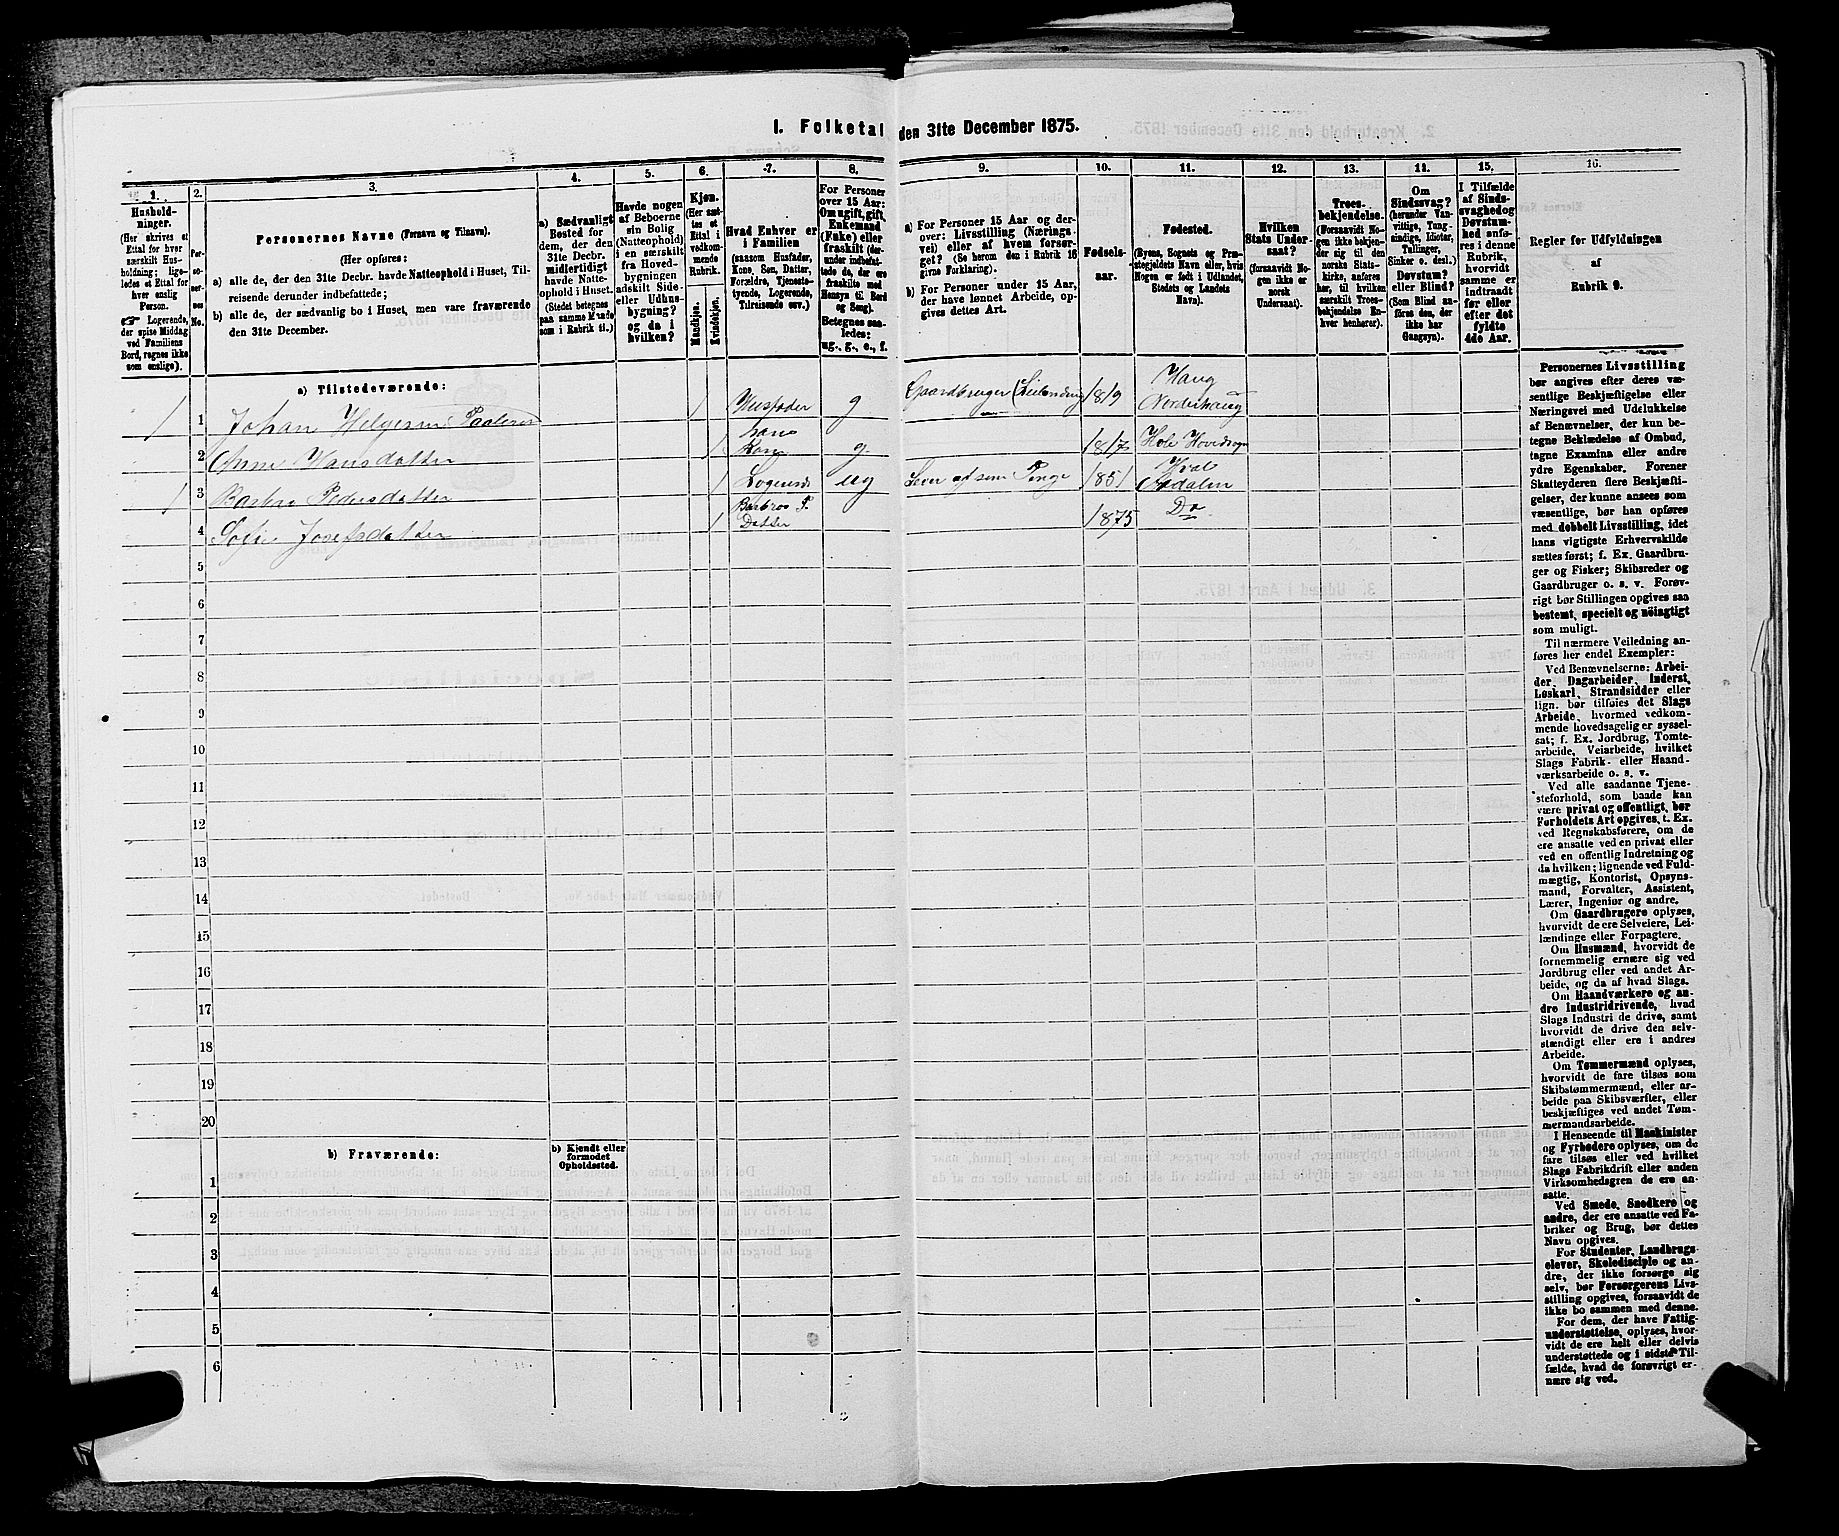 1. Folketal den 31te December 1875.
1.
Hushold-
ninger.
(Her skrives et
Ettal for hver
særskilt Hus-
holdning; lige-
ledes et Ettal for
hver enslig
Person.
☞ Logerende,
der spise Middag
ved Familiens
Bord, regnes ikke
som enslige).
2.
Per-
so-
ner-
nes
No.
3.
Personernes Navne (Fornavn og Tilnavn).
(Her opføres:
a) alle de, der den 31te Decbr. havde Natteophold i Huset, Til-
reisende derunder indbefattede;
b) alle de, der sædvanlig bo i Huset, men vare fraværende
den 31te December.
4.
a) Sædvanligt
Bosted for
dem, der den
31te Decbr.
midlertidigt
havde Natte-
ophold i Huset.
(Stedet betegnes
paa samme Maade
som i Rubrik 11.)
5.
Havde nogen
af Beboerne
sin Bolig
(Natteophold)
i en særskilt
fra Hoved-
bygningen
adskilt Side-
eller Udhus-
bygning?
og da i
hvilken?
6.
Kjøn.
(Her sæt-
tes et
Ettal i
vedkom-
mende
Rubrik.
Mandkjøn.
Kvindekjøn.
7.
Hvad Enhver er
i Familien
(saasom Husfader,
Kone, Søn, Datter,
Forældre, Tjeneste-
tyende, Logerende,
Tilreisende osv.)
8.
For Personer
over 15 Aar:
Om ugift, gift,
Enkemand
(Enke) eller
fraskilt (der-
under indbefat-
tede de, der ere
fraskilte med
Hensyn til Bord
og Seng).
Betegnes saa-
ledes:
ug., g., e., f.
9.
a) For Personer 15 Aar og der-
over: Livsstilling (Nærings-
vei) eller af hvem forsør-
get? (Se herom den i Rubrik 16
givne Forklaring).
b) For Personer under 15 Aar,
der have lønnet Arbeide, op-
gives dettes Art.
10.
Fødsels-
aar.
11.
Fødested.
(Byens, Sognets og Præ-
stegjeldets Navn eller, hvis
Nogen er født i Udlandet,
Stedets og Landets
Navn).
12.
Hvilken
Stats Under-
saat?
(forsaavidt No-
gen ikke er
norsk
Undersaat).
13.
Troes-
bekjendelse.
(Forsaavidt No-
gen ikke bekjen-
der sig til den
norske Stats-
kirke, anføres
her, til hvilken
særskilt Troes-
bekjendelse En-
hver henhører).
14.
Om
Sindssvag?
(herunder Van-
vittige, Tung-
sindige, Idioter,
Tullinger,
Sinker o. desl.)
Døvstum?
eller Blind?
(Som Blind an-
føres den, der
ikke har
Gangsyn).
15.
I Tilfælde
af Sinds-
svaghed og
Døvstum-
hed anfø-
res i denne
Rubrik,
hvorvidt
samme er
indtraadt
før eller
efter det
fyldte
4de Aar.
16.
Regler for Udfyldningen
af
Rubrik 9.
a) Tilstedeværende:
1 1 Johan Helgesen 1 Husfader g Gaardbruger 1819 Haug
Norderhaug
2 Anne Hansdatter 1 hans
Kone g. 1817 Hole Hovedsogn
1 3 Barbro Pedersdatter 1 ug Lever af sine Penge 1851
4 Sofie Josefsdatter 1 Barbros P.
Datter 1875 Do
5
6
7
8
9
10
11
12
13
14
15
16
17
18
19
20
b) Fraværende:
b) Kjendt eller
formodet
Opholdssted.
1
2
3
4
5
6
Personernes Livsstilling
bør angives efter deres væ-
sentlige Beskjæftigelse eller
Næringsvei med Udelukkelse
af Benævnelser, der kun be-
tegne Beklædelse af Ombud,
tagne Examina eller andre
ydre Egenskaber. Forener
Skatteyderen flere Beskjæfti-
gelser, der kunne ansees som
væsentlige, bør han opføres
med dobbelt Livsstilling, idet
hans vigtigste Erhvervskilde
sættes først; f. Ex. Gaardbru-
ger og Fisker; Skibsreder og
Gaardbruger o. s. v. Forøv-
rigt bør Stillingen opgives saa
bestemt, specielt og nöiagtigt
som muligt.
Til nærmere Veiledning an-
føres her endel Exempler:
Ved Benævnelserne: Arbei-
der, Dagarbeider, Inderst,
Løskarl, Strandsidder eller
lign. bør tilføies det Slags
Arbeide, hvormed vedkom-
mende hovedsagelig er syssel-
sat; f. Ex. Jordbrug, Tomte-
arbeide, Veiarbeide, hvilket
Slags Fabrik- eller Haand-
værksarbeide o. s. v.
Ved alle saadanne Tjene-
steforhold, som baade kan
være privat og offentligt, bør
Forholdets Art opgives, t. Ex.
ved Regnskabsførere, om de
ere ansatte ved en privat eller
ved en offentlig Indretning og
da hvilken; lignende ved Fuld-
mægtig, Kontorist, Opsyns-
mand, Forvalter, Assistent,
Lærer, Ingeniør og andre.
Om Gaardbrugere oplyses,
hvorvidt de ere Selveiere, Lei-
lændinge eller Forpagtere.
Om Husmænd, hvorvidt de
fornemmelig ernære sig ved
Jordbrug eller ved andet Ar-
beide, og da af hvad Slags.
Om Haandværkere og an-
dre Industridrivende, hvad
Slags Industri de drive, samt
hvorvidt de drive den selv-
stændigt eller ere i andres
Arbeide.
Om Tømmermænd oplyses,
hvorvidt de fare tilsøs som
Skibstømmermænd, eller ar-
beide paa Skibsværfter, eller
beskjæftiges ved andet Tøm-
mermandsarbeide.
I Henseende til Maskinister
og Fyrbødere oplyses, om de
fare tilsøs eller ved hvilket
Slags Fabrikdrift eller anden
Virksomhedsgren de ere an-
satte.
Ved Smede, Snedkere og
andre, der ere ansatte ved Fa-
briker og Brug, bør dettes
Navn opgives.
For Studenter, Landbrugs-
elever, Skoledisciple og an-
dre, der ikke forsørge sig
selv, bør Forsørgerens Livs-
stilling opgives, forsaavidt de
ikke bo sammen med denne.
For dem, der have Fattig-
understøttelse, oplyses, hvor-
vidt de ere helt eller delvis
understøttede og i sidste Til-
fælde, hvad de forøvrigt er-
nære sig ved.